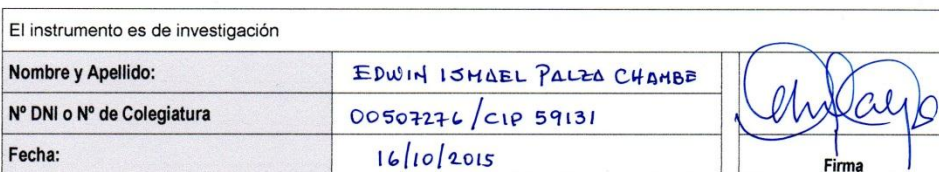 El instrumento es de investigación
Nombre y Apellido: EDWIN ISMAEL PALZA CHAMBE
Nº DNI o Nº de Colegiatura 00507276/CIP 59131
Fecha: 16/10/2015
Firma